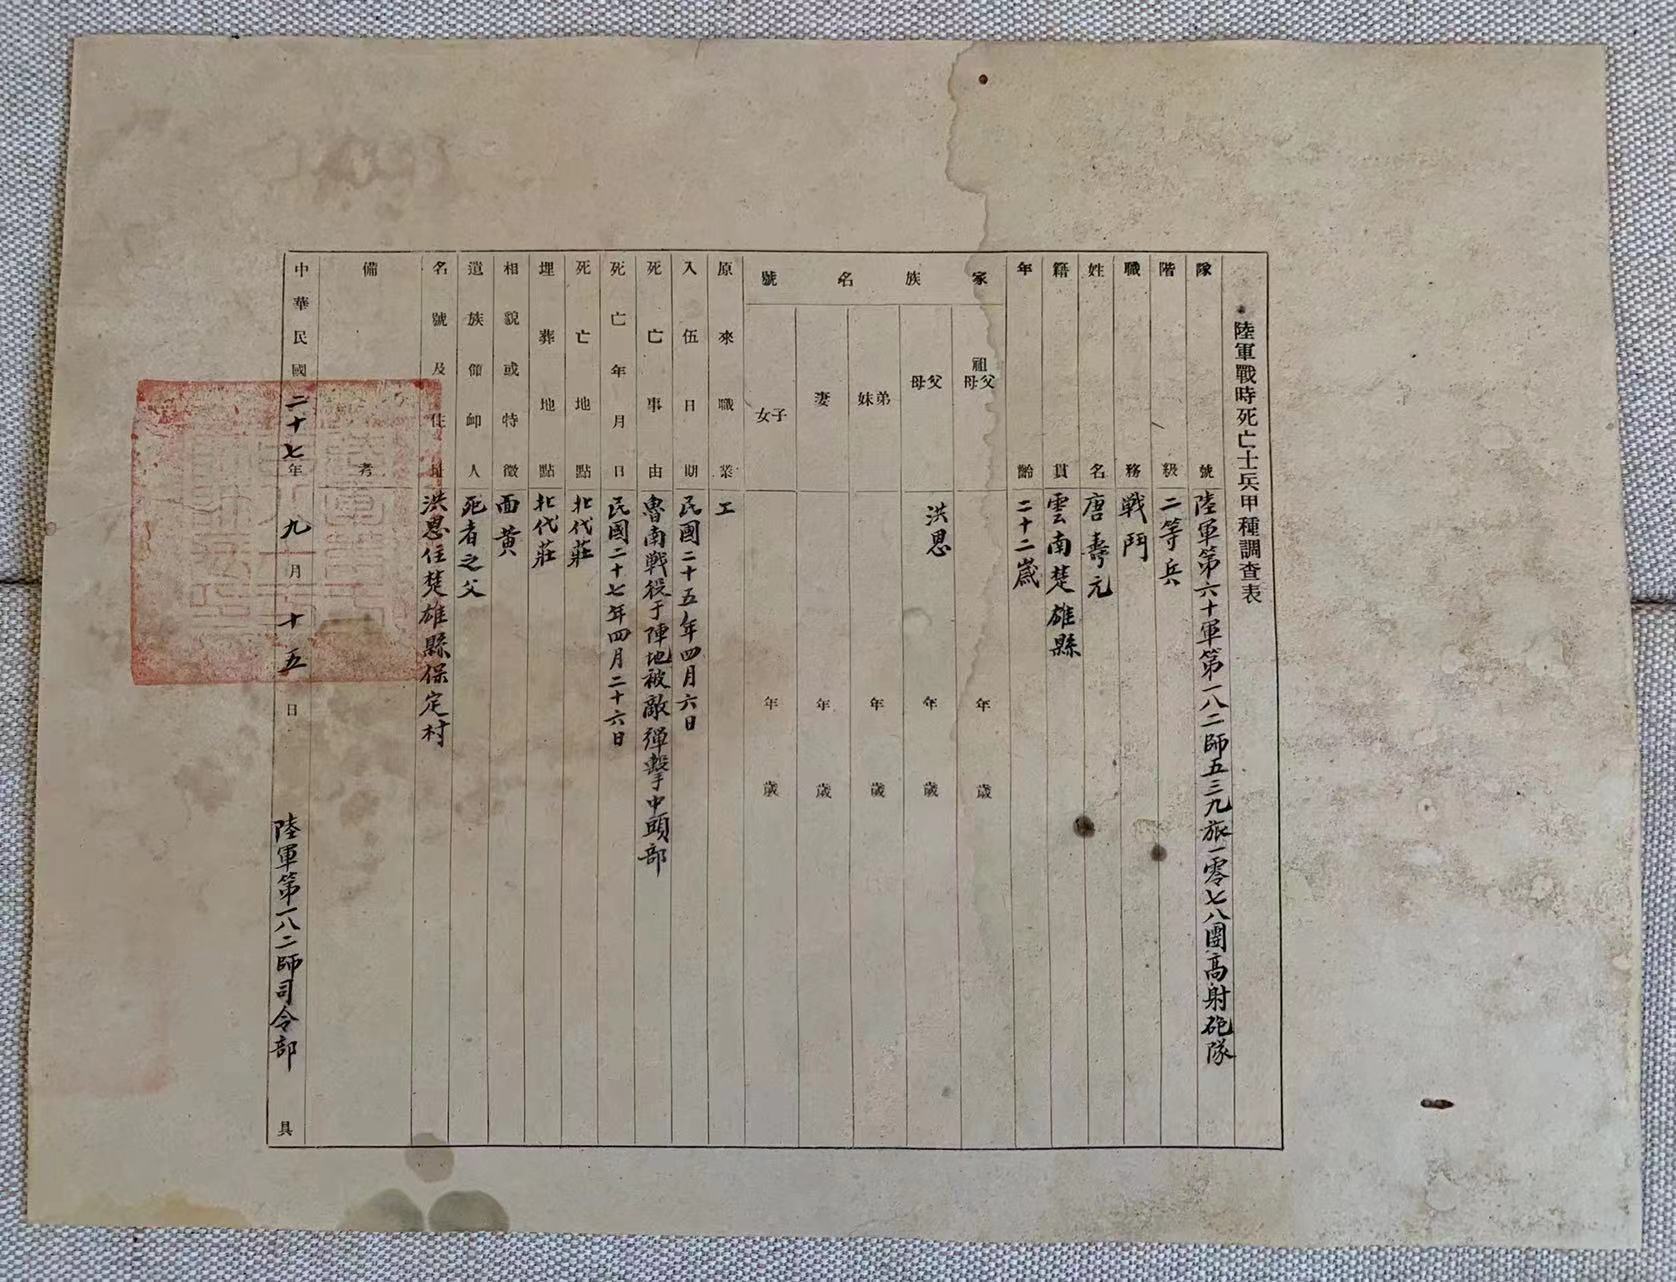 陸軍戰時死亡士兵甲種調查表
隊號 陸軍第六十軍第一八二師五三九旅一零七八團高射砲隊
階級 二等兵
職務 戰鬥
姓名 唐壽元
籍貫 雲南楚雄縣
年齡 二十二歲
家族名號
祖父母 年 歲
父母 洪恩 年 歲
弟妹 年 歲
妻 年 歲
子女 年 歲
原來職業 工
入伍日期 民國二十五年四月六日
死亡事由 魯南戰役于陣地被敵彈擊中頭部
死亡年月日 民國二十七年四月二十六日
死亡地點 北代莊
埋葬地點 北代莊
相貌或特徵 面黃
遺族領卹人 死者之父
名號及住址 洪恩住楚雄縣保定村
備考
中華民國二十七年九月十五日 陸軍第一八二師司令部 具